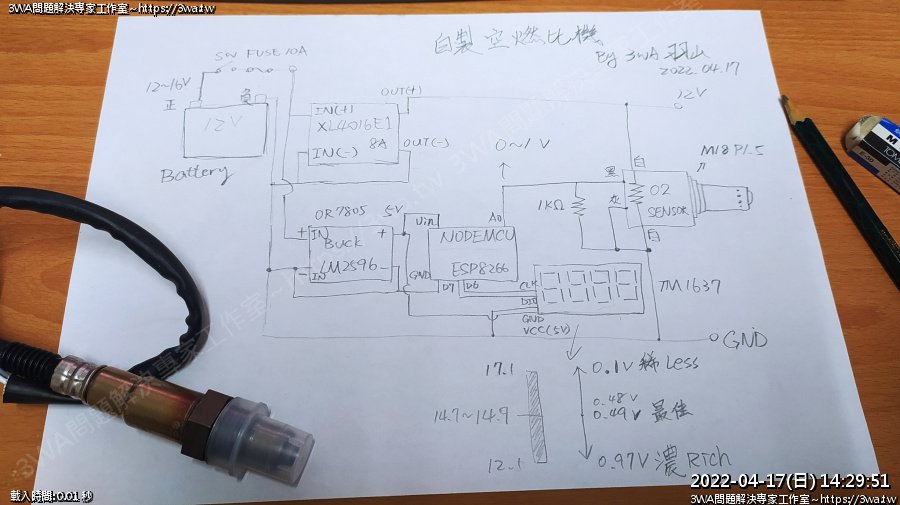 3WA問題解決專家工作室~https://3wa.tw
3WA問題解決專家工作室~https://3wa.tw
自製空燃比機
By 3WA 羽山
2022.04.17
SW FUSE10A
12~16V
正
負
12V
Battery
OUT(+)
IN(+)
XL4016E1
8A
IN(-)
OUT(-)
12V
0~1V
M18 P1.5
白
黑
灰
白
O2
SENSOR
1KΩ
OR7805
5V
Vin
A0
+
IN
BUCK
+
LM2596
-
IN
-
NODEMCU
ESP8266
GND
D7
D6
CLK
DIO
GND
VCC(5V)
TM1637
GND
17.1
14.7~14.9
12.1
0.1V 稀 Less
0.48V
0.49V 最佳
0.97V 濃 Rich
載入時間:0.01 秒
2022-04-17(日) 14:29:51
3WA問題解決專家工作室~https://3wa.tw